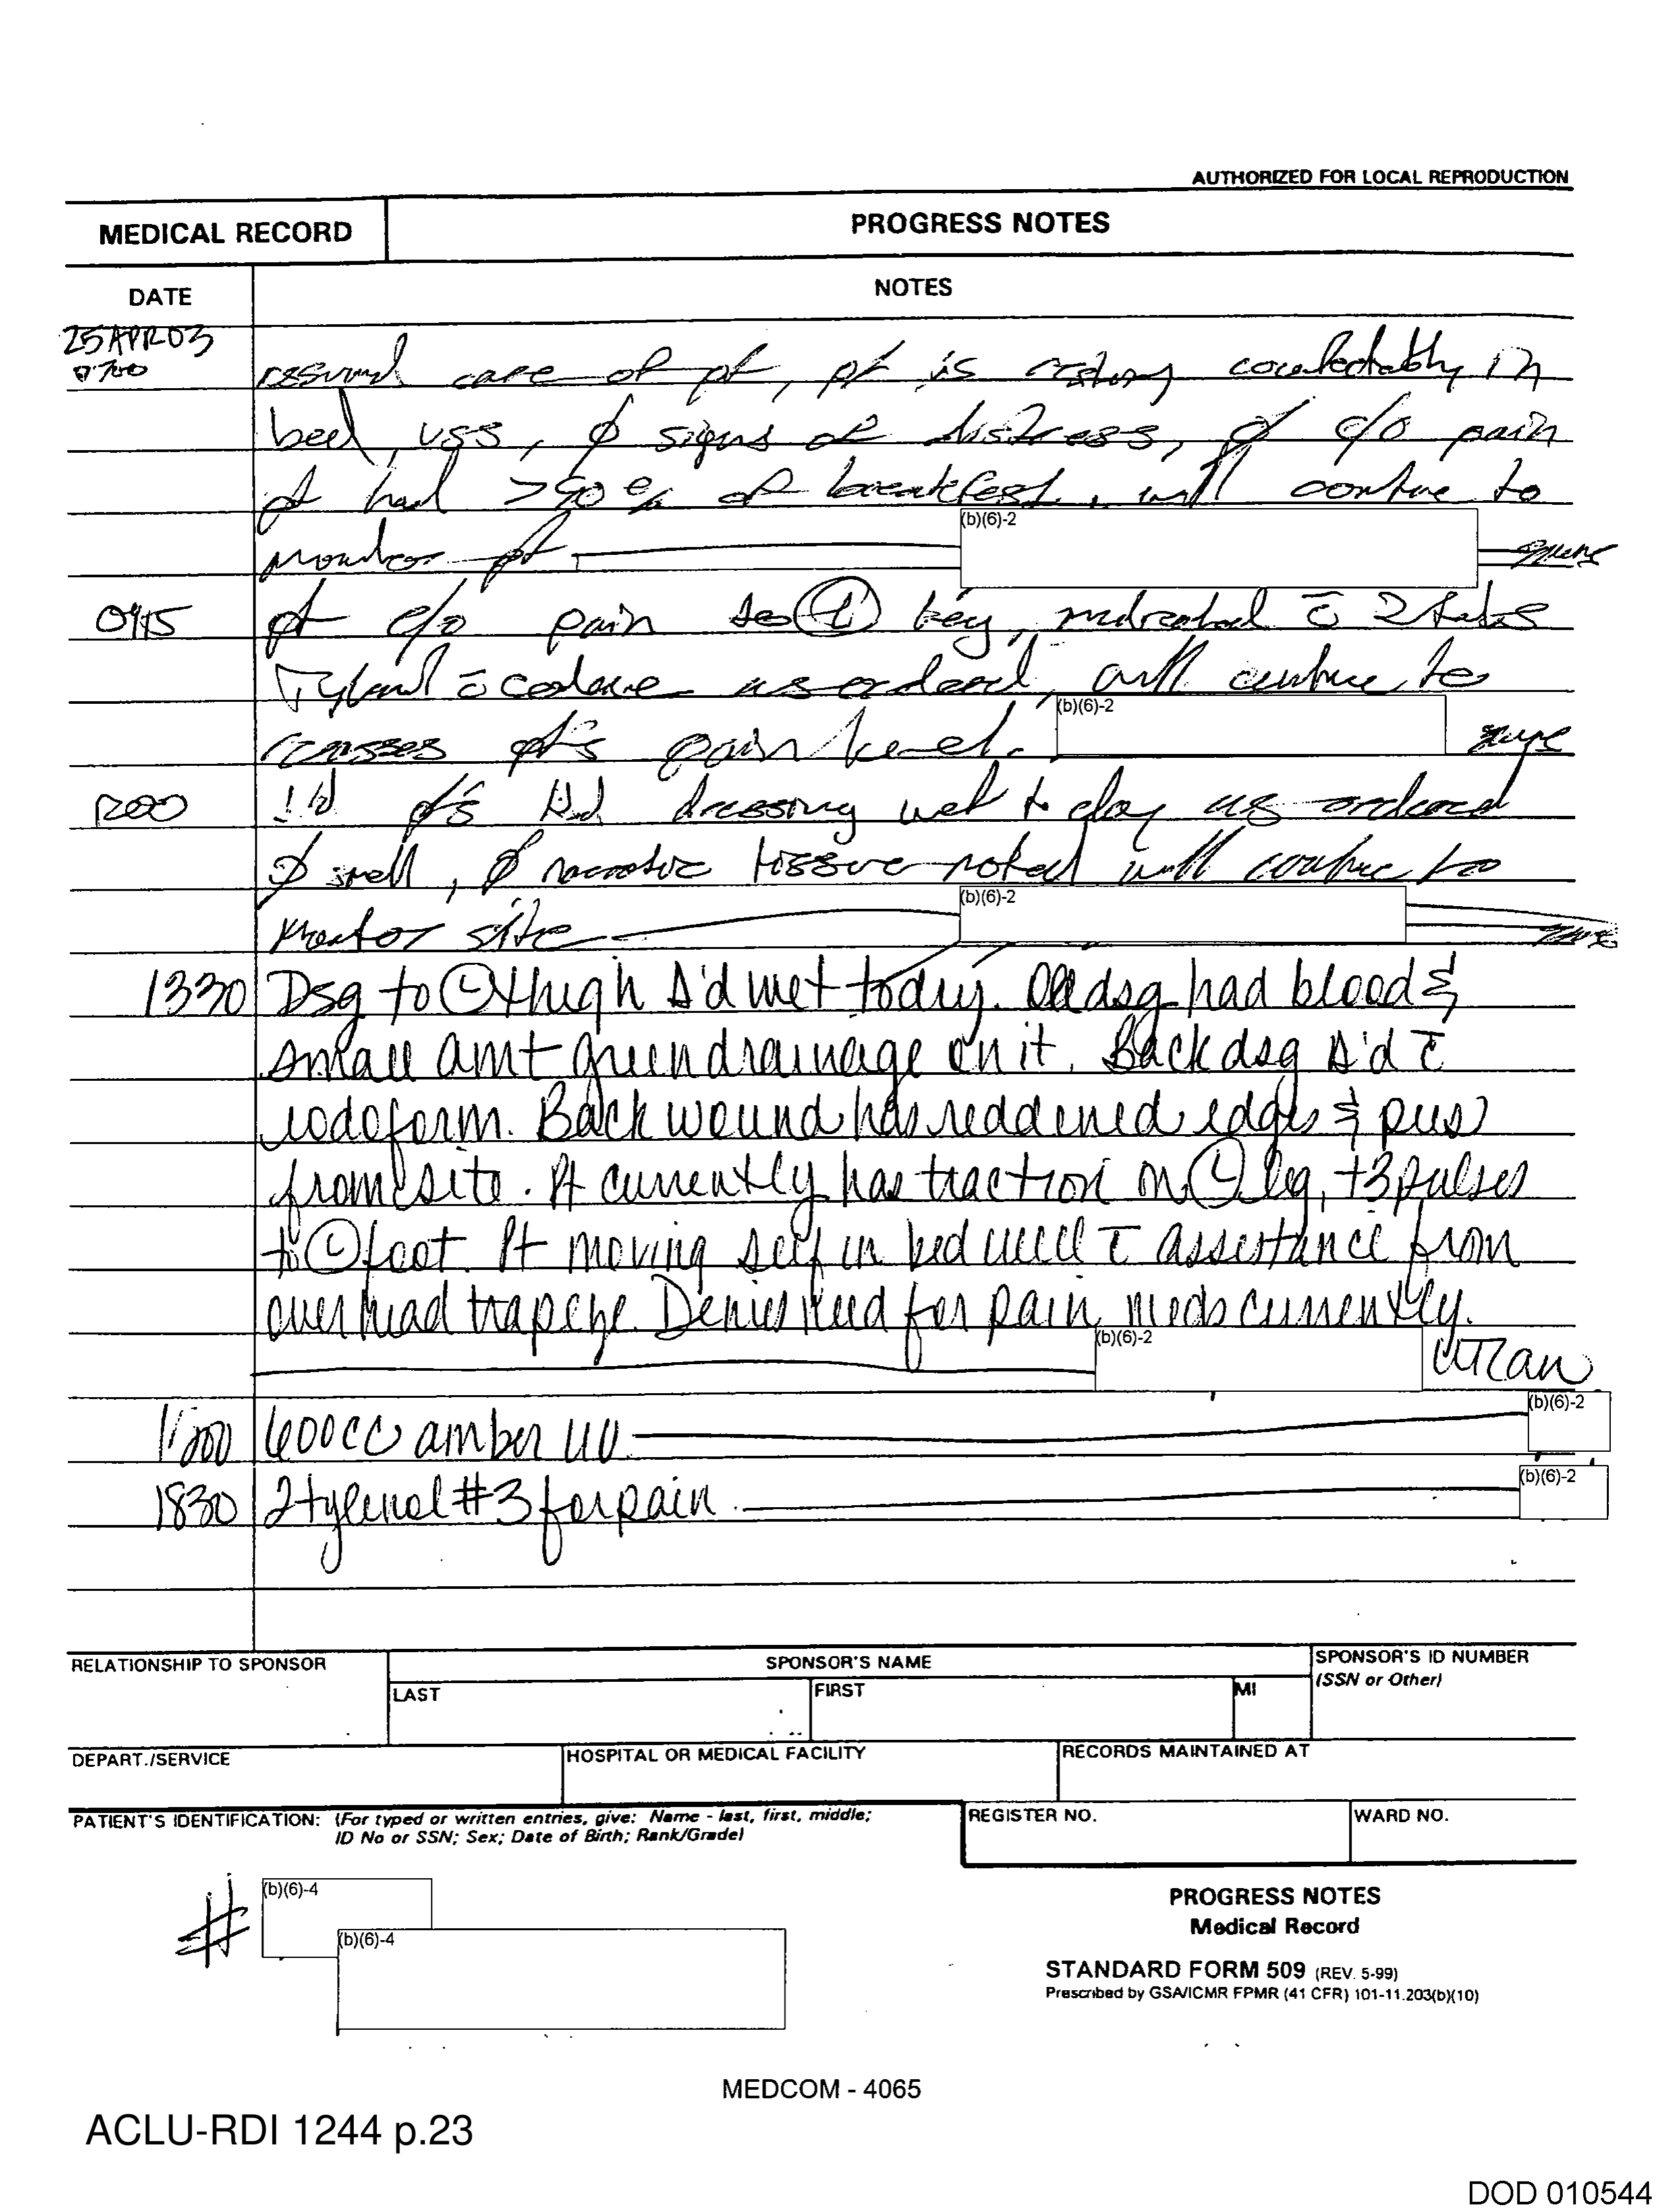 AUTHORIZED FOR LOCAL REPRODUCTION
MEDICAL RECORD
PROGRESS NOTES
DATE
NOTES
25APR03
0700
care of pt, pt is resting comfortably in
bed, VSS, ∅ signs of distress, ∅ c/o pain
pt had >90% of breakfast, will continue to
monitor pt
(b)(6)-2
0915 pt c/o pain to Ⓛ leg, medicated c̄ 2 tabs
Tylenol c̄ codeine as ordered, will continue to
reassess pt's pain level.
(b)(6)-2
1200 pt's dressing wet to dry as ordered
∅ smell, ∅ necrotic tissue noted will continue to
monitor site
(b)(6)-2
1330 Dsg to Ⓛ thigh Δ'd wet to dry. Old dsg had blood &
small amt green drainage on it. Back dsg Δ'd c̄
iodoform. Back wound has reddened edges & pus
from site. Pt currently has traction on Ⓛ leg, +3 pulses
to Ⓛ foot. Pt moving self in bed well c̄ assistance from
overhead trapeze. Denies need for pain meds currently.
(b)(6)-2
600cc amber UO
(b)(6)-2
1830 2 tylenol #3 for pain
(b)(6)-2
RELATIONSHIP TO SPONSOR
SPONSOR'S NAME
SPONSOR'S ID NUMBER
(SSN or Other)
LAST
FIRST
MI
DEPART./SERVICE
HOSPITAL OR MEDICAL FACILITY
RECORDS MAINTAINED AT
PATIENT'S IDENTIFICATION: (For typed or written entries, give: Name - last, first, middle;
ID No or SSN; Sex; Date of Birth; Rank/Grade)
REGISTER NO.
WARD NO.
#
(b)(6)-4
(b)(6)-4
PROGRESS NOTES
Medical Record
STANDARD FORM 509 (REV. 5-99)
Prescribed by GSA/ICMR FPMR (41 CFR) 101-11.203(b)(10)
MEDCOM - 4065
ACLU-RDI 1244 p.23
DOD 010544